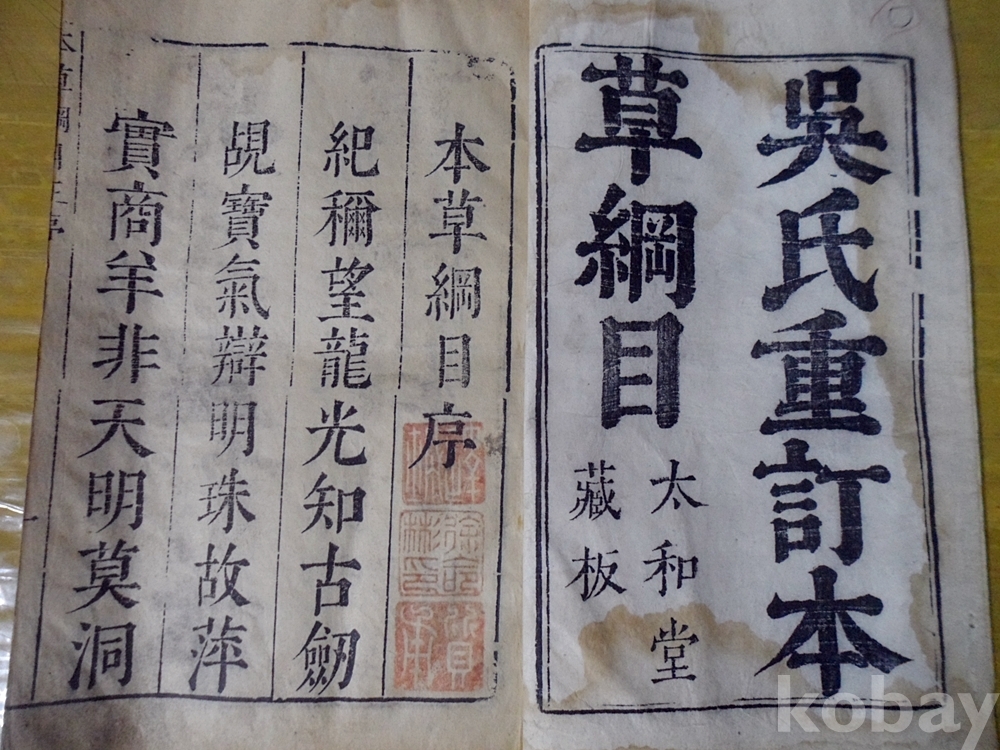 吳氏重訂本
草綱目
太和堂
藏板
本草綱目序
紀稱望龍光知古劒
覘寶氣辯明珠故萍
實商羊非天明莫洞
kobay